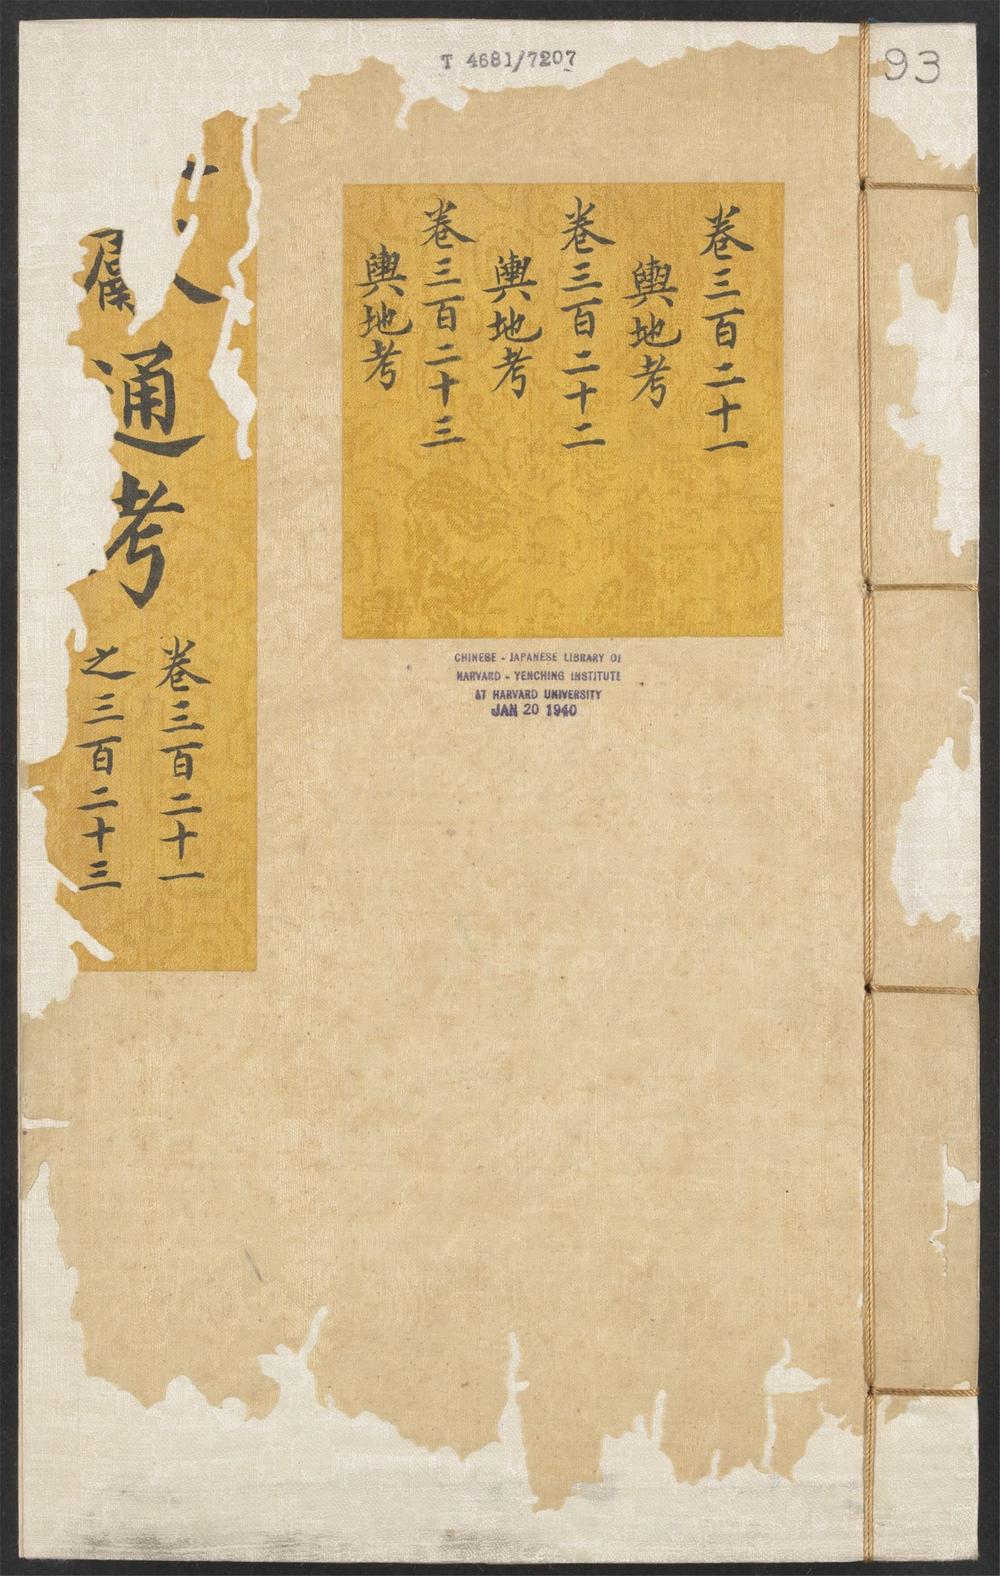 T 4681/7207
93
卷三百二十一
輿地考
卷三百二十二
輿地考
卷三百二十三
輿地考
CHINESE - JAPANESE LIBRARY OF
HARVARD - YENCHING INSTITUTE
AT HARVARD UNIVERSITY
JAN 20 1940
通考
卷三百二十一
之三百二十三